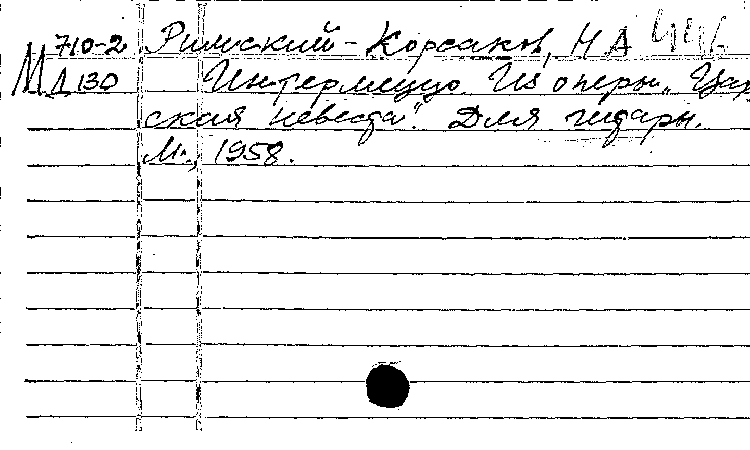 710-2 Римский-Корсаков, Н А
М Д 130 Интермеццо Из оперы „Цар
ская невеста". Для гитары.
М., 1958.